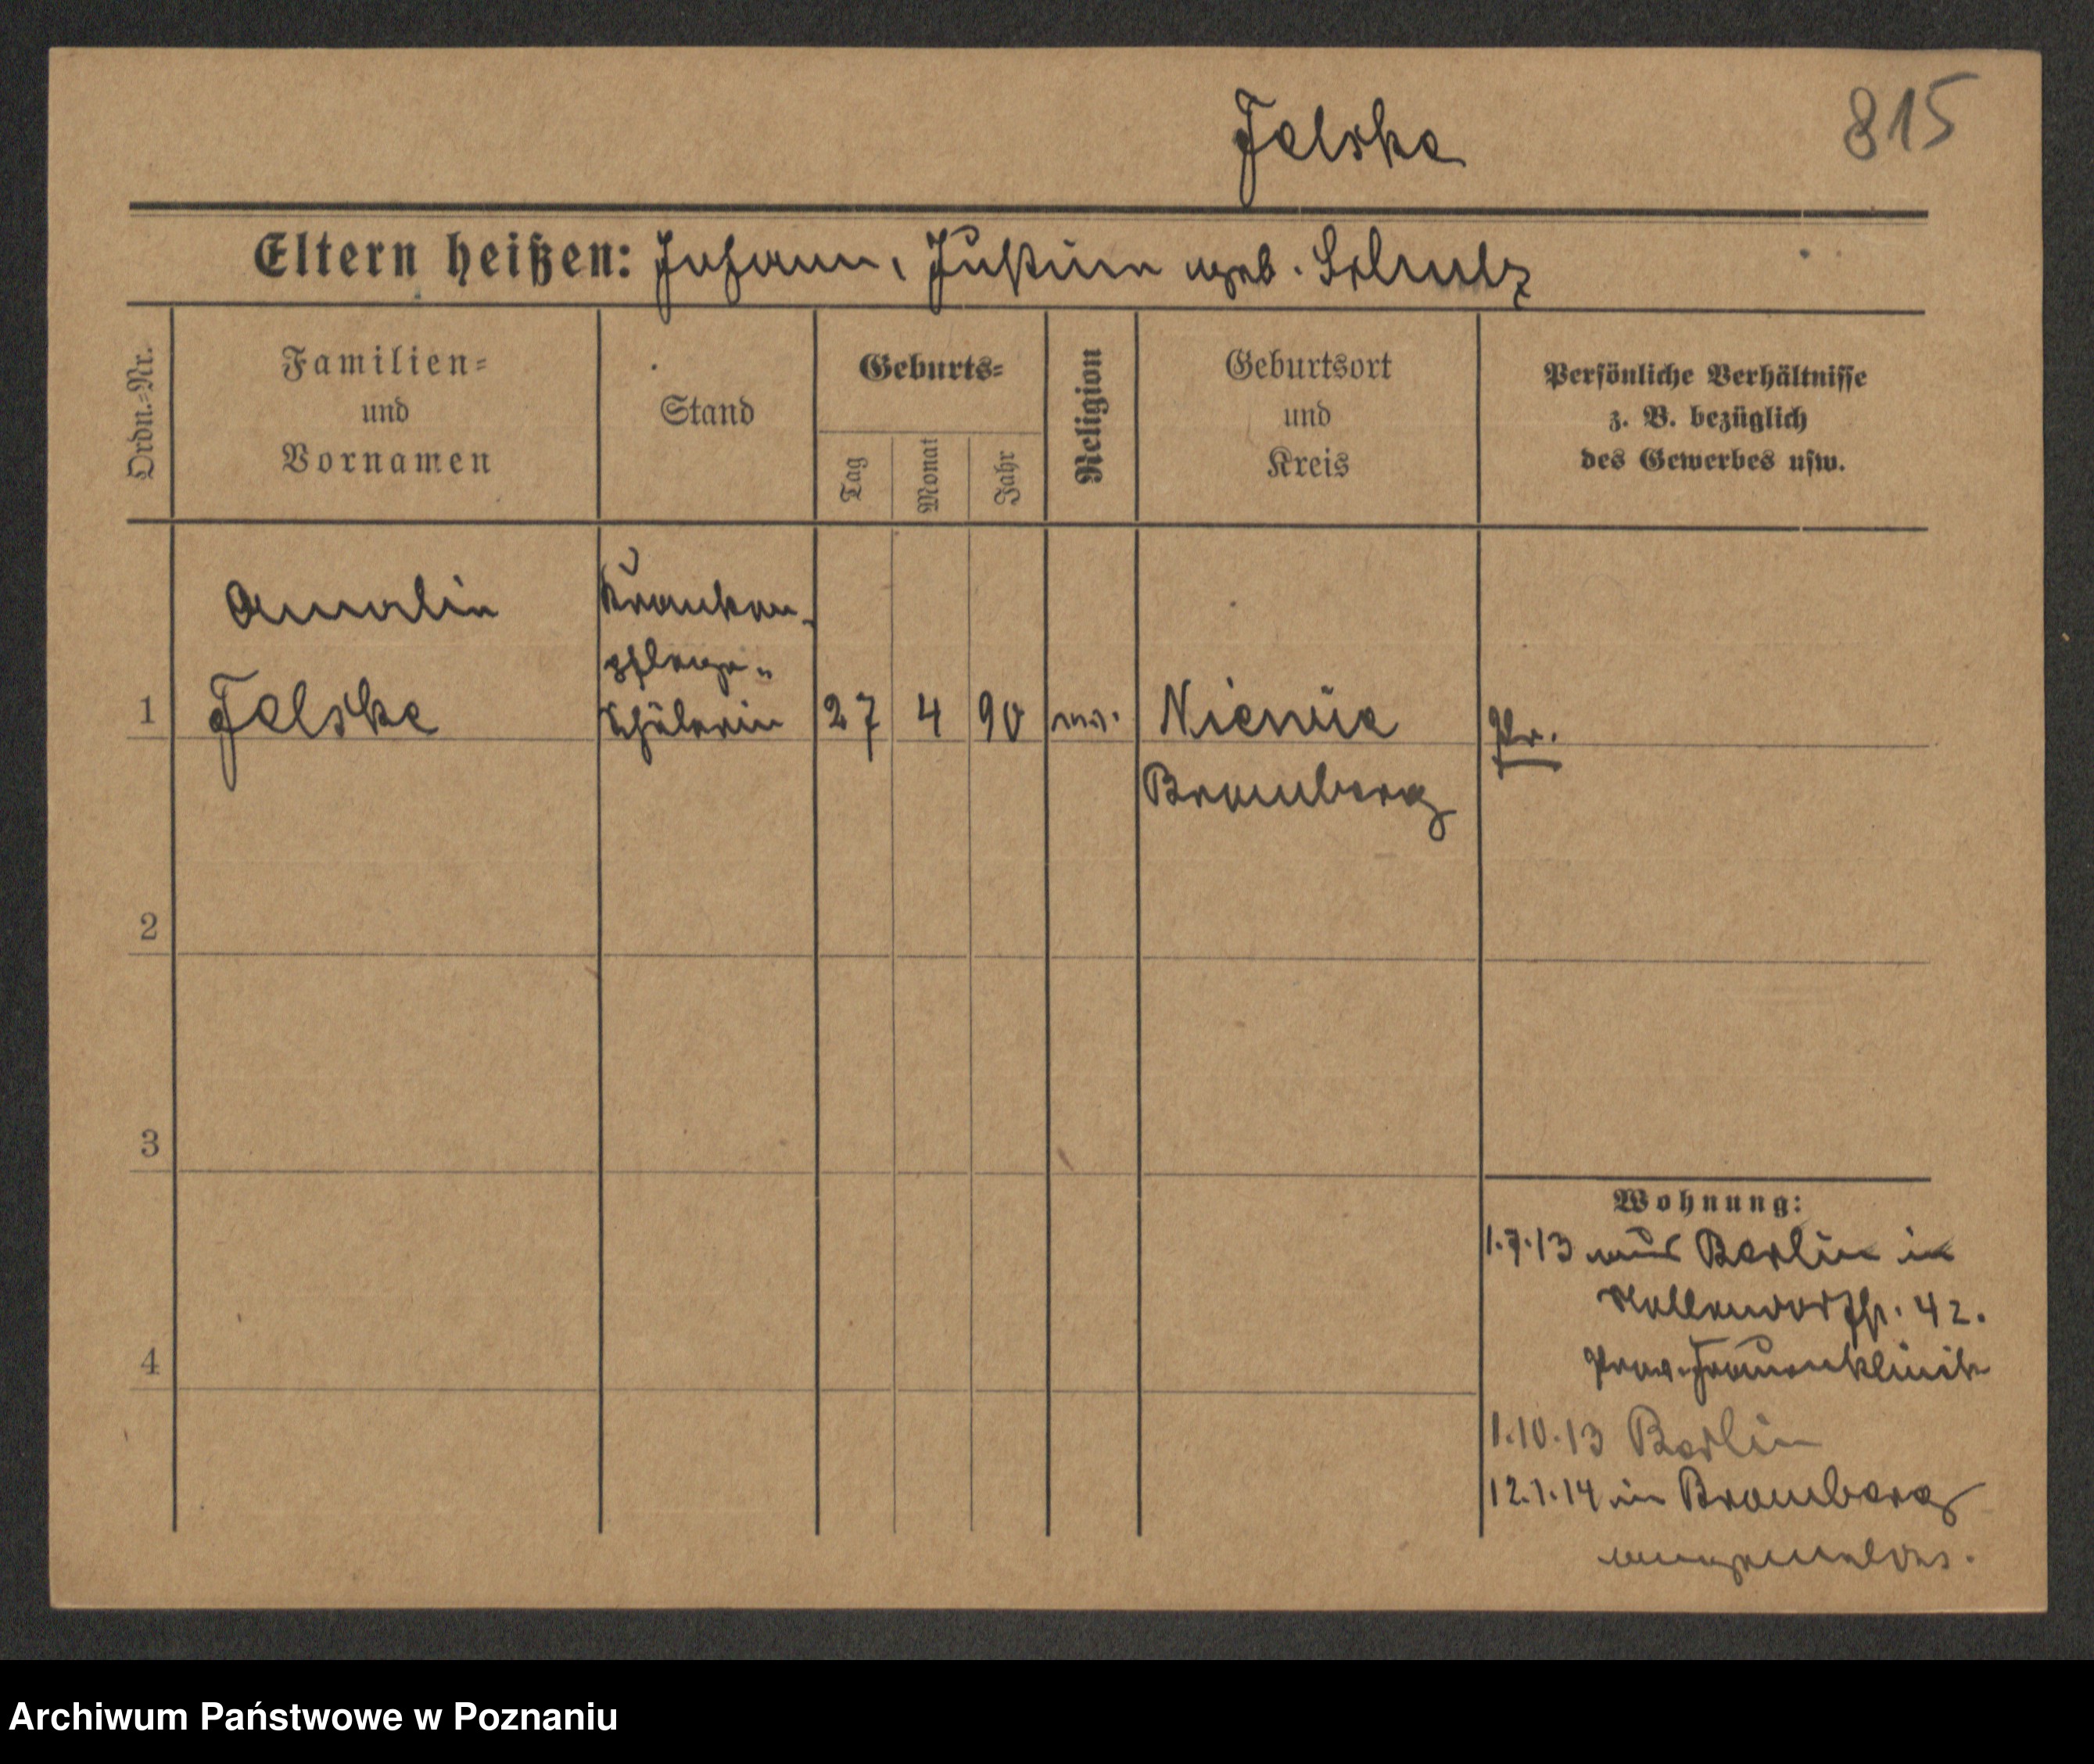 Felske
815
Eltern heißen: Johann, Justine geb. Schulz
Ordn.-Nr.
Familien-
und
Vornamen
Stand
Geburts-
Tag
Monat
Jahr
Religion
Geburtsort
und
Kreis
Persönliche Verhältnisse
z. B. bezüglich
des Gewerbes usw.
Amalie
Kranken-
pflege-
1 Felske schülerin 27 4 90 Pr.
Bromberg
2
3
4
Wohnung:
1.7.13 aus Berlin in
42.
Prov. Frauenklinik
1.10.13 Berlin
12.1.14 in Bromberg
angemeldet.
Archiwum Państwowe w Poznaniu